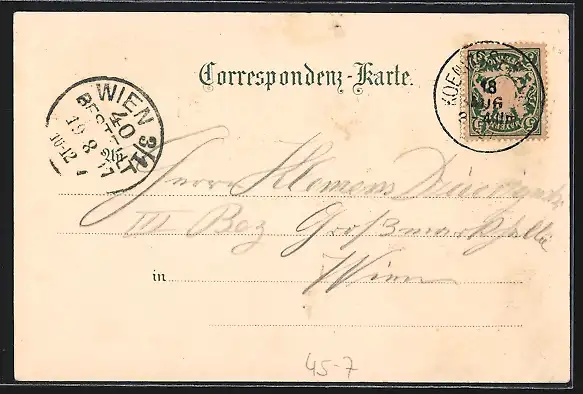 Correspondenz-Karte.
WIEN 3/1
40
BESTELLT
19 8 97
10-12
KOENIGS
18
AUG
An
Herrn Klemens
III Bez Großmarkthalle
in Wien
45-7